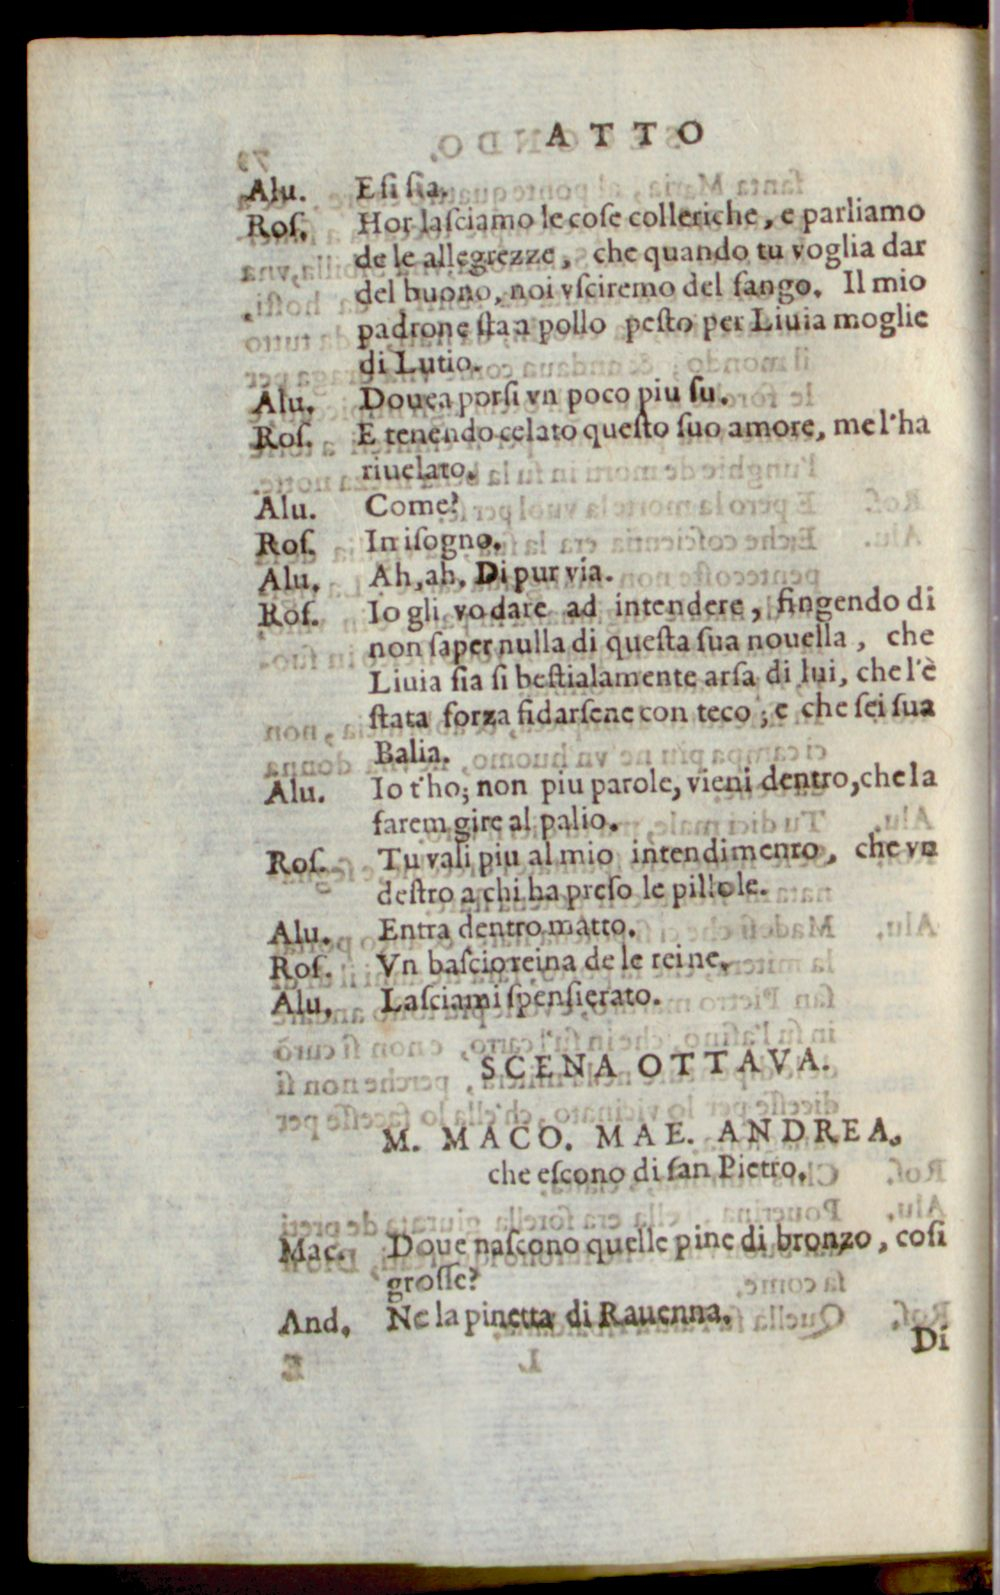 ATTO
Alu. E si sia.
Roſ. Hor laſciamo le coſe colleriche, e parliamo
de le allegrezze, che quando tu voglia dar
del buono, noi vſciremo del fango. Il mio
padrone ſta a pollo peſto per Liuia moglie
di Lutio.
Alu. Douea porſi vn poco piu ſu.
Roſ. E tenendo celato queſto ſuo amore, me l'ha
riuelato.
Alu. Come?
Roſ. In iſogno.
Alu. Ah, ah. Di pur via.
Roſ. Io gli vo dare ad intendere, fingendo di
non ſaper nulla di queſta ſua nouella, che
Liuia ſia ſi beſtialamente arſa di lui, che l'è
ſtata forza fidarſene con teco; e che ſei ſua
Balia.
Alu. Io t'ho; non piu parole, vieni dentro, che la
farem gire al palio.
Roſ. Tu vali piu al mio intendimento, che vn
deſtro a chi ha preſo le pillole.
Alu. Entra dentro matto.
Roſ. Vn baſcio reina de le reine.
Alu. Laſciami ſpenſierato.
SCENA OTTAVA.
M. MACO. MAE. ANDREA.
che eſcono di ſan Pietro.
Mac. Doue naſcono quelle pine di bronzo, coſi
groſſe?
And. Ne la pinetta di Rauenna.
Di